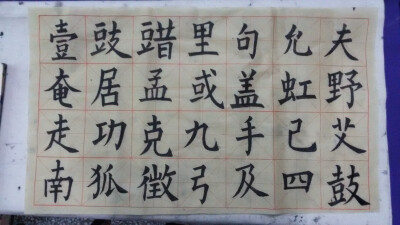 夫野艾鼓
允虹己四
句盖手及
里或九弓
孟克徵
豉居功狐
壹奄走南